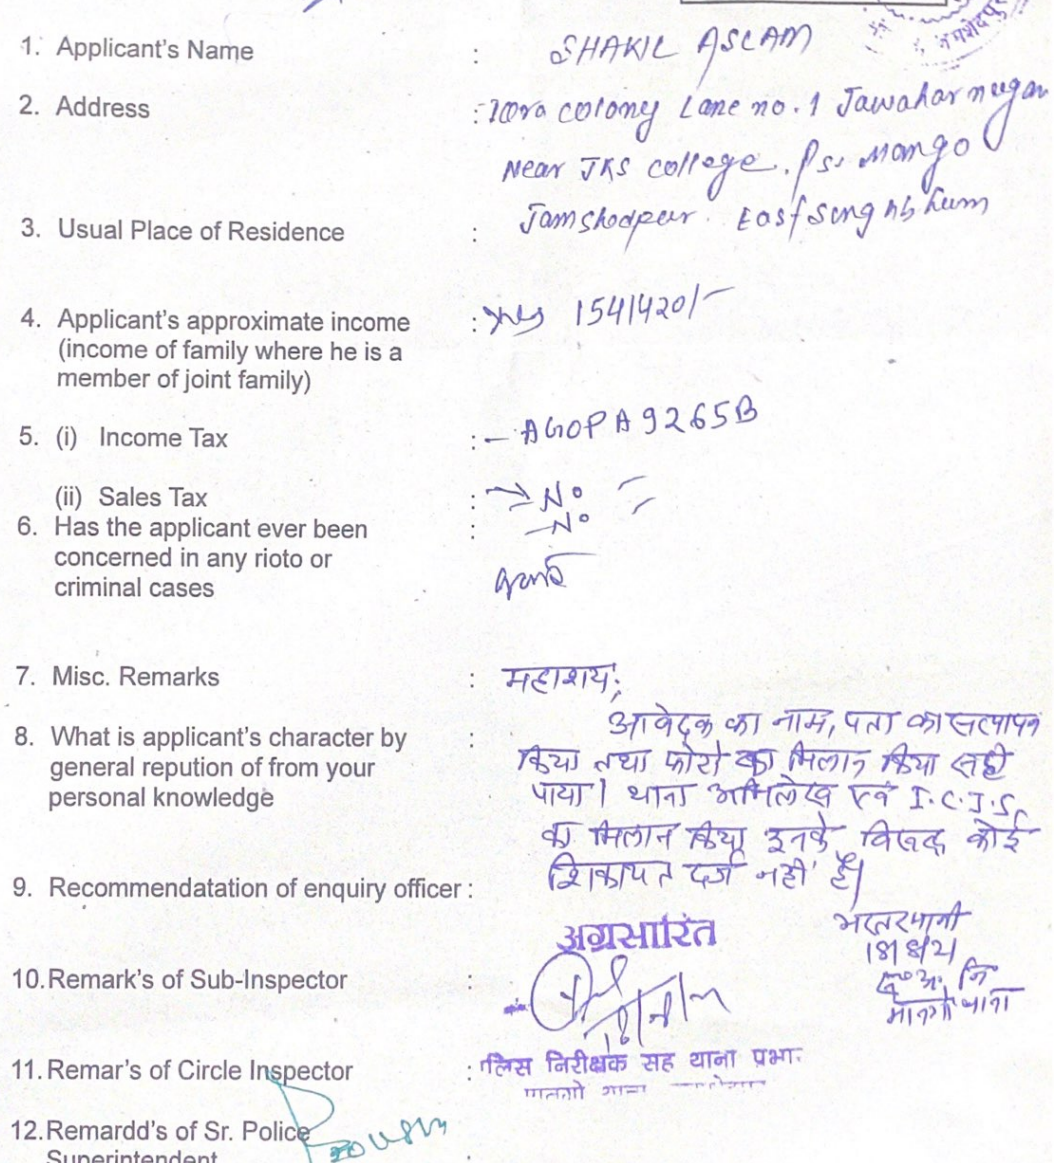 जमशेदपुर
1. Applicant's Name : SHAKIL ASLAM
2. Address : Zora colony Lane no. 1 Jawahar nugar
Near JKS college. Ps. Mango
Jamshedpur. East Singhbhum
3. Usual Place of Residence :
4. Applicant's approximate income : 1541420/-
(income of family where he is a
member of joint family)
5. (i) Income Tax : - AGOPA9265B
(ii) Sales Tax : → No =
6. Has the applicant ever been : No
concerned in any rioto or
criminal cases
7. Misc. Remarks : महाशय,
8. What is applicant's character by : आवेदक का नाम, पता का सत्यापन
general repution of from your किया तथा फोटो का मिलान किया सही
personal knowledge पाया। थाना अभिलेख एवं I.C.J.S.
का मिलान किया इनके विरुद्ध कोई
शिकायत दर्ज नहीं है।
9. Recommendatation of enquiry officer :
अग्रसारित
10. Remark's of Sub-Inspector :
मानगो थाना
11. Remar's of Circle Inspector : पुलिस निरीक्षक सह थाना प्रभा
12. Remardd's of Sr. Police
Superintendent :